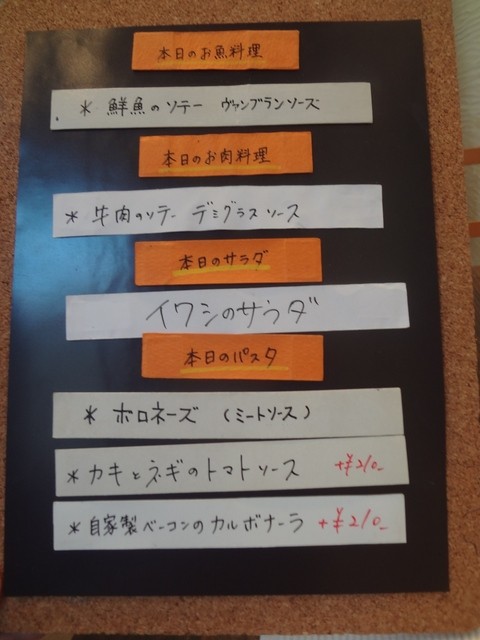 本日のお魚料理
* 鮮魚のソテー ヴァンブランソース
本日のお肉料理
* 牛肉のソテー デミグラスソース
本日のサラダ
イワシのサラダ
本日のパスタ
* ボロネーズ (ミートソース)
* カキとネギのトマトソース +¥210-
* 自家製ベーコンのカルボナーラ +¥210-